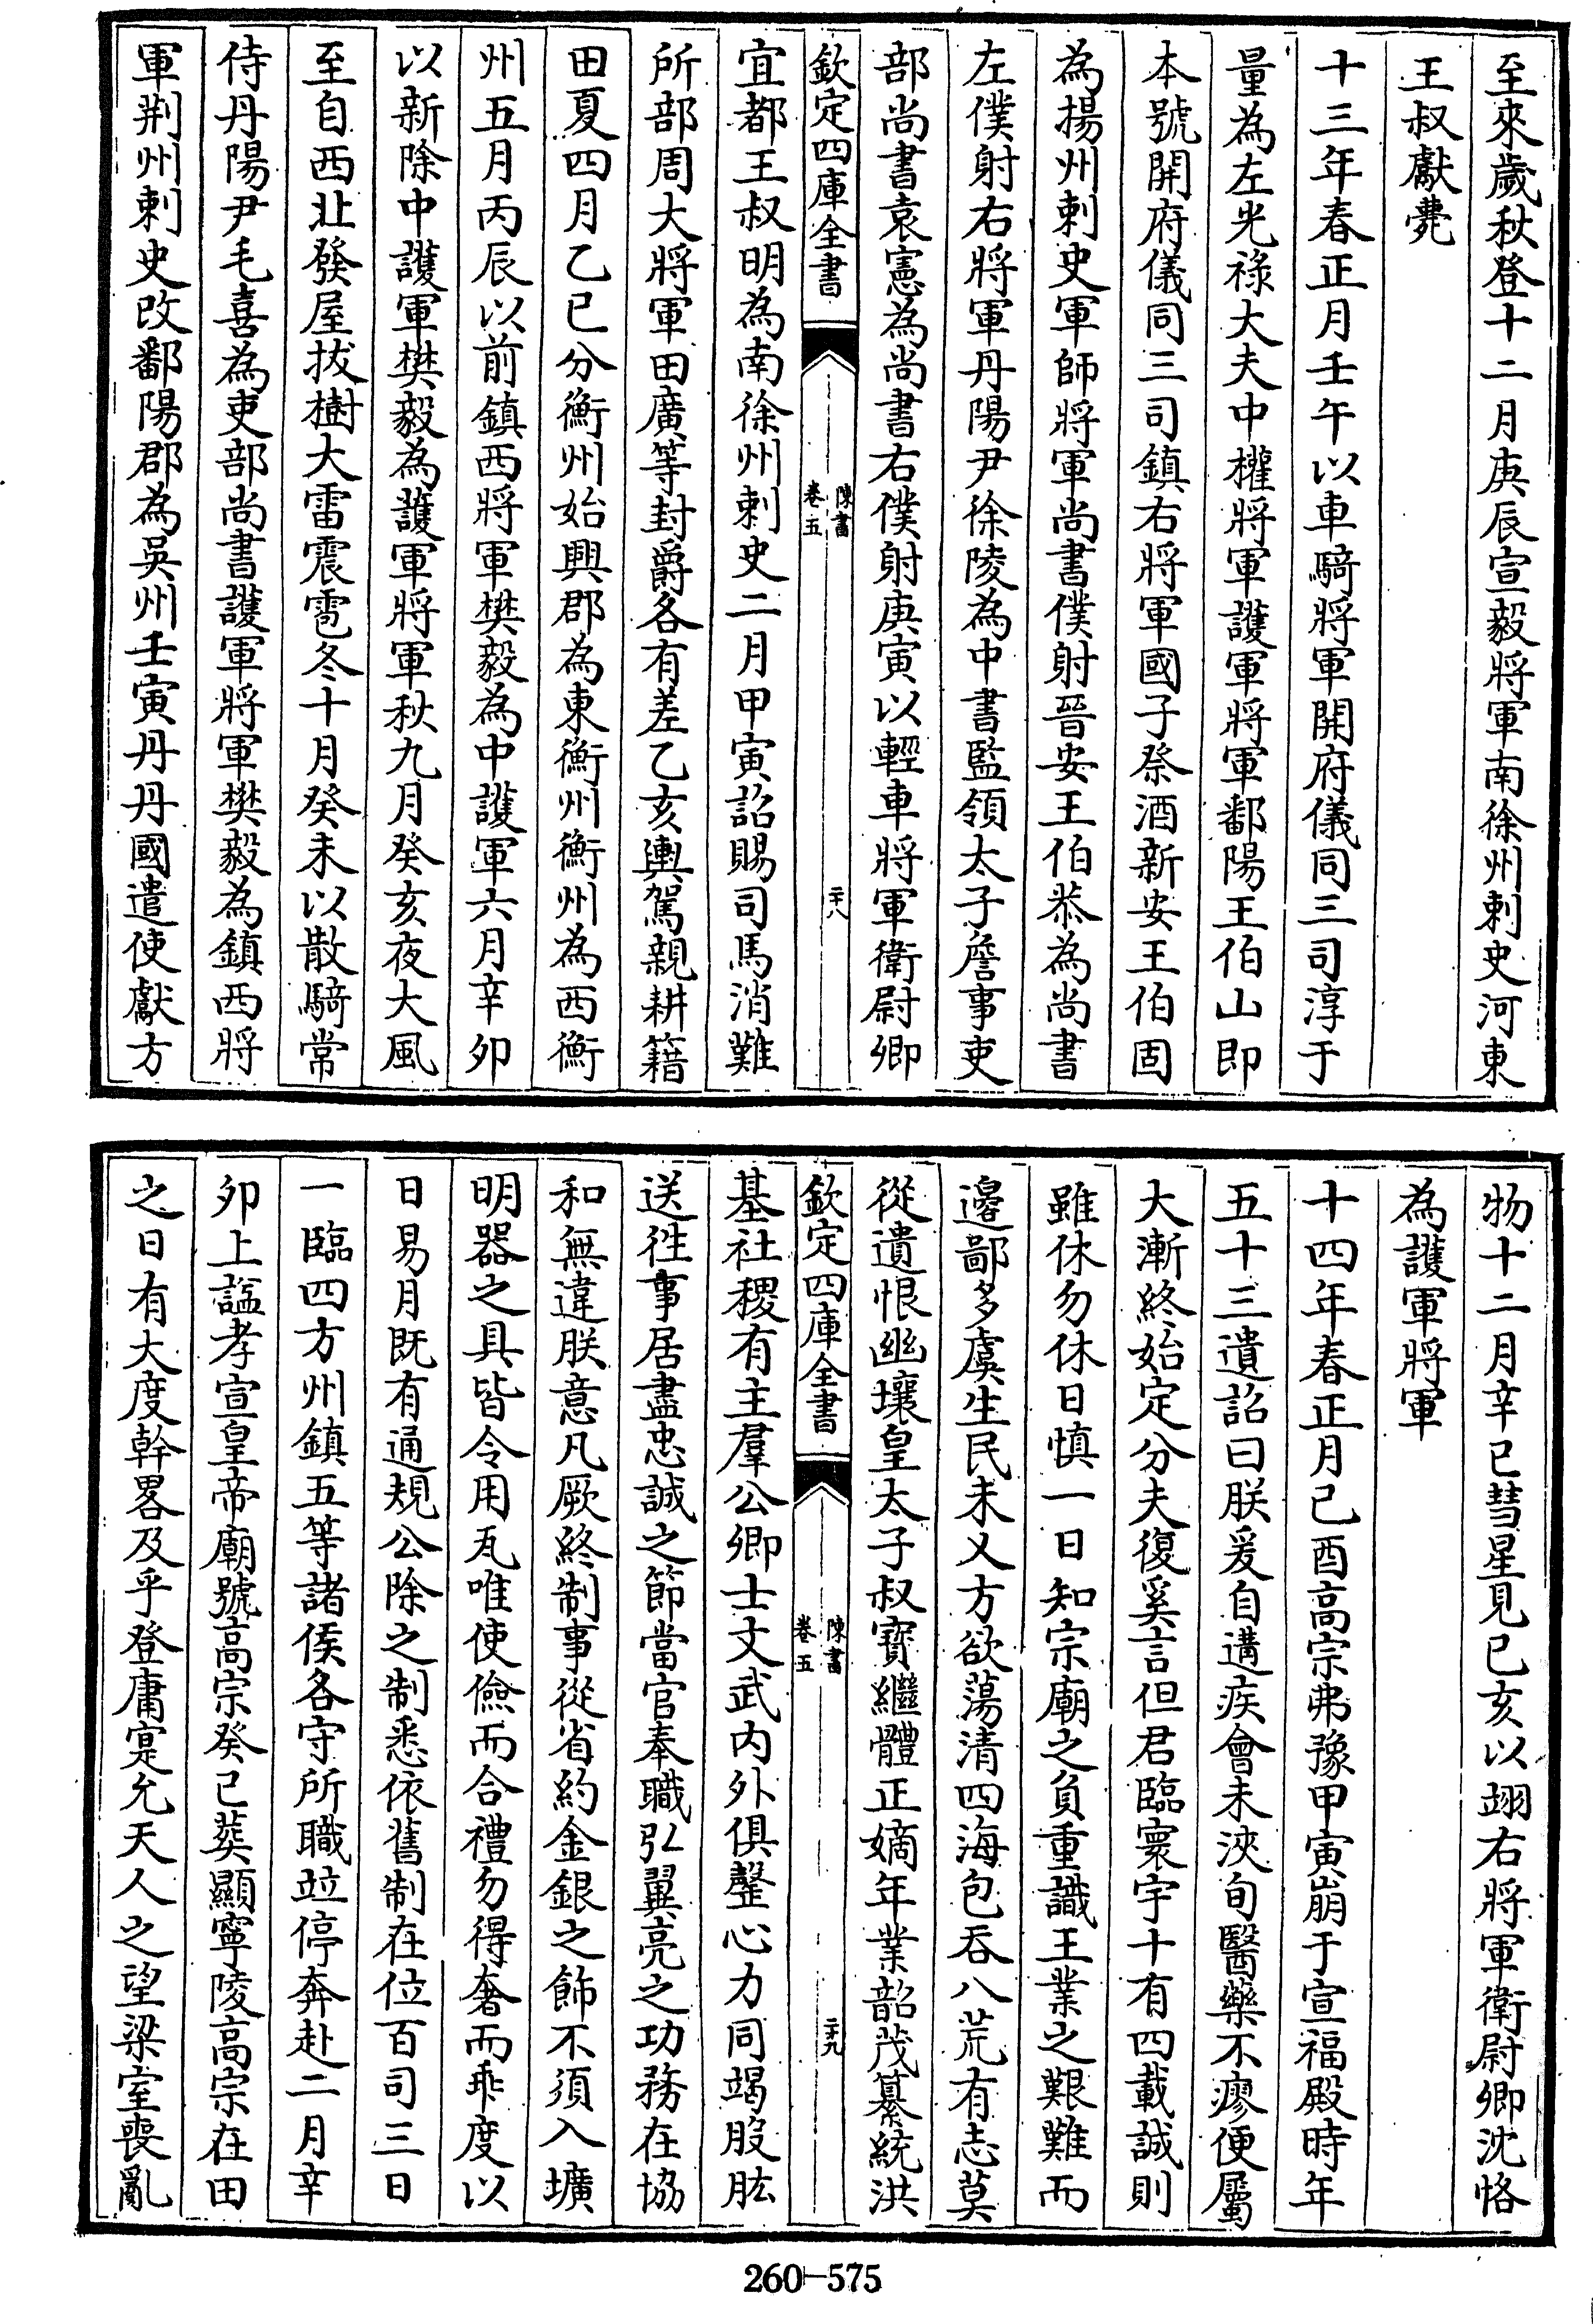 至來歲秋登十二月庚辰宣毅將軍南徐州刺史河東
王叔獻薨
十三年春正月壬午以車騎將軍開府儀同三司淳于
量為左光祿大夫中權將軍護軍將軍鄱陽王伯山即
本號開府儀同三司鎮右將軍國子祭酒新安王伯固
為揚州刺史軍師將軍尚書僕射晉安王伯恭為尚書
左僕射右將軍丹陽尹徐陵為中書監領太子詹事吏
部尚書袁憲為尚書右僕射庚寅以輕車將軍衛尉卿
欽定四庫全書
陳書
卷五
二十八
宜都王叔明為南徐州刺史二月甲寅詔賜司馬消難
所部周大將軍田廣等封爵各有差乙亥輿駕親耕籍
田夏四月乙巳分衡州始興郡為東衡州衡州為西衡
州五月丙辰以前鎮西將軍樊毅為中護軍六月辛卯
以新除中護軍樊毅為護軍將軍秋九月癸亥夜大風
至自西北發屋拔樹大雷震雹冬十月癸未以散騎常
侍丹陽尹毛喜為吏部尚書護軍將軍樊毅為鎮西將
軍荆州刺史改鄱陽郡為吳州壬寅丹丹國遣使獻方
物十二月辛巳彗星見已亥以翊右將軍衛尉卿沈恪
為護軍將軍
十四年春正月己酉高宗弗豫甲寅崩于宣福殿時年
五十三遺詔曰朕爰自遘疾曾未浹旬醫藥不瘳便屬
大漸終始定分夫復奚言但君臨寰宇十有四載誠則
雖休勿休日慎一日知宗廟之負重識王業之艱難而
邊鄙多虞生民未乂方欲蕩清四海包吞八荒有志莫
從遺恨幽壤皇太子叔寶繼體正嫡年業韶茂纂統洪
欽定四庫全書
陳書
卷五
二十九
基社稷有主羣公卿士文武內外俱罄心力同竭股肱
送徃事居盡忠誠之節當官奉職弘翼亮之功務在協
和無違朕意凡厥終制事從省約金銀之飾不須入壙
明器之具皆令用瓦唯使儉而合禮勿得奢而乖度以
日易月既有通規公除之制悉依舊制在位百司三日
一臨四方州鎮五等諸侯各守所職竝停奔赴二月辛
卯上諡孝宣皇帝廟號高宗癸巳葬顯寧陵高宗在田
之日有大度幹畧及乎登庸寔允天人之望梁室喪亂
260-575